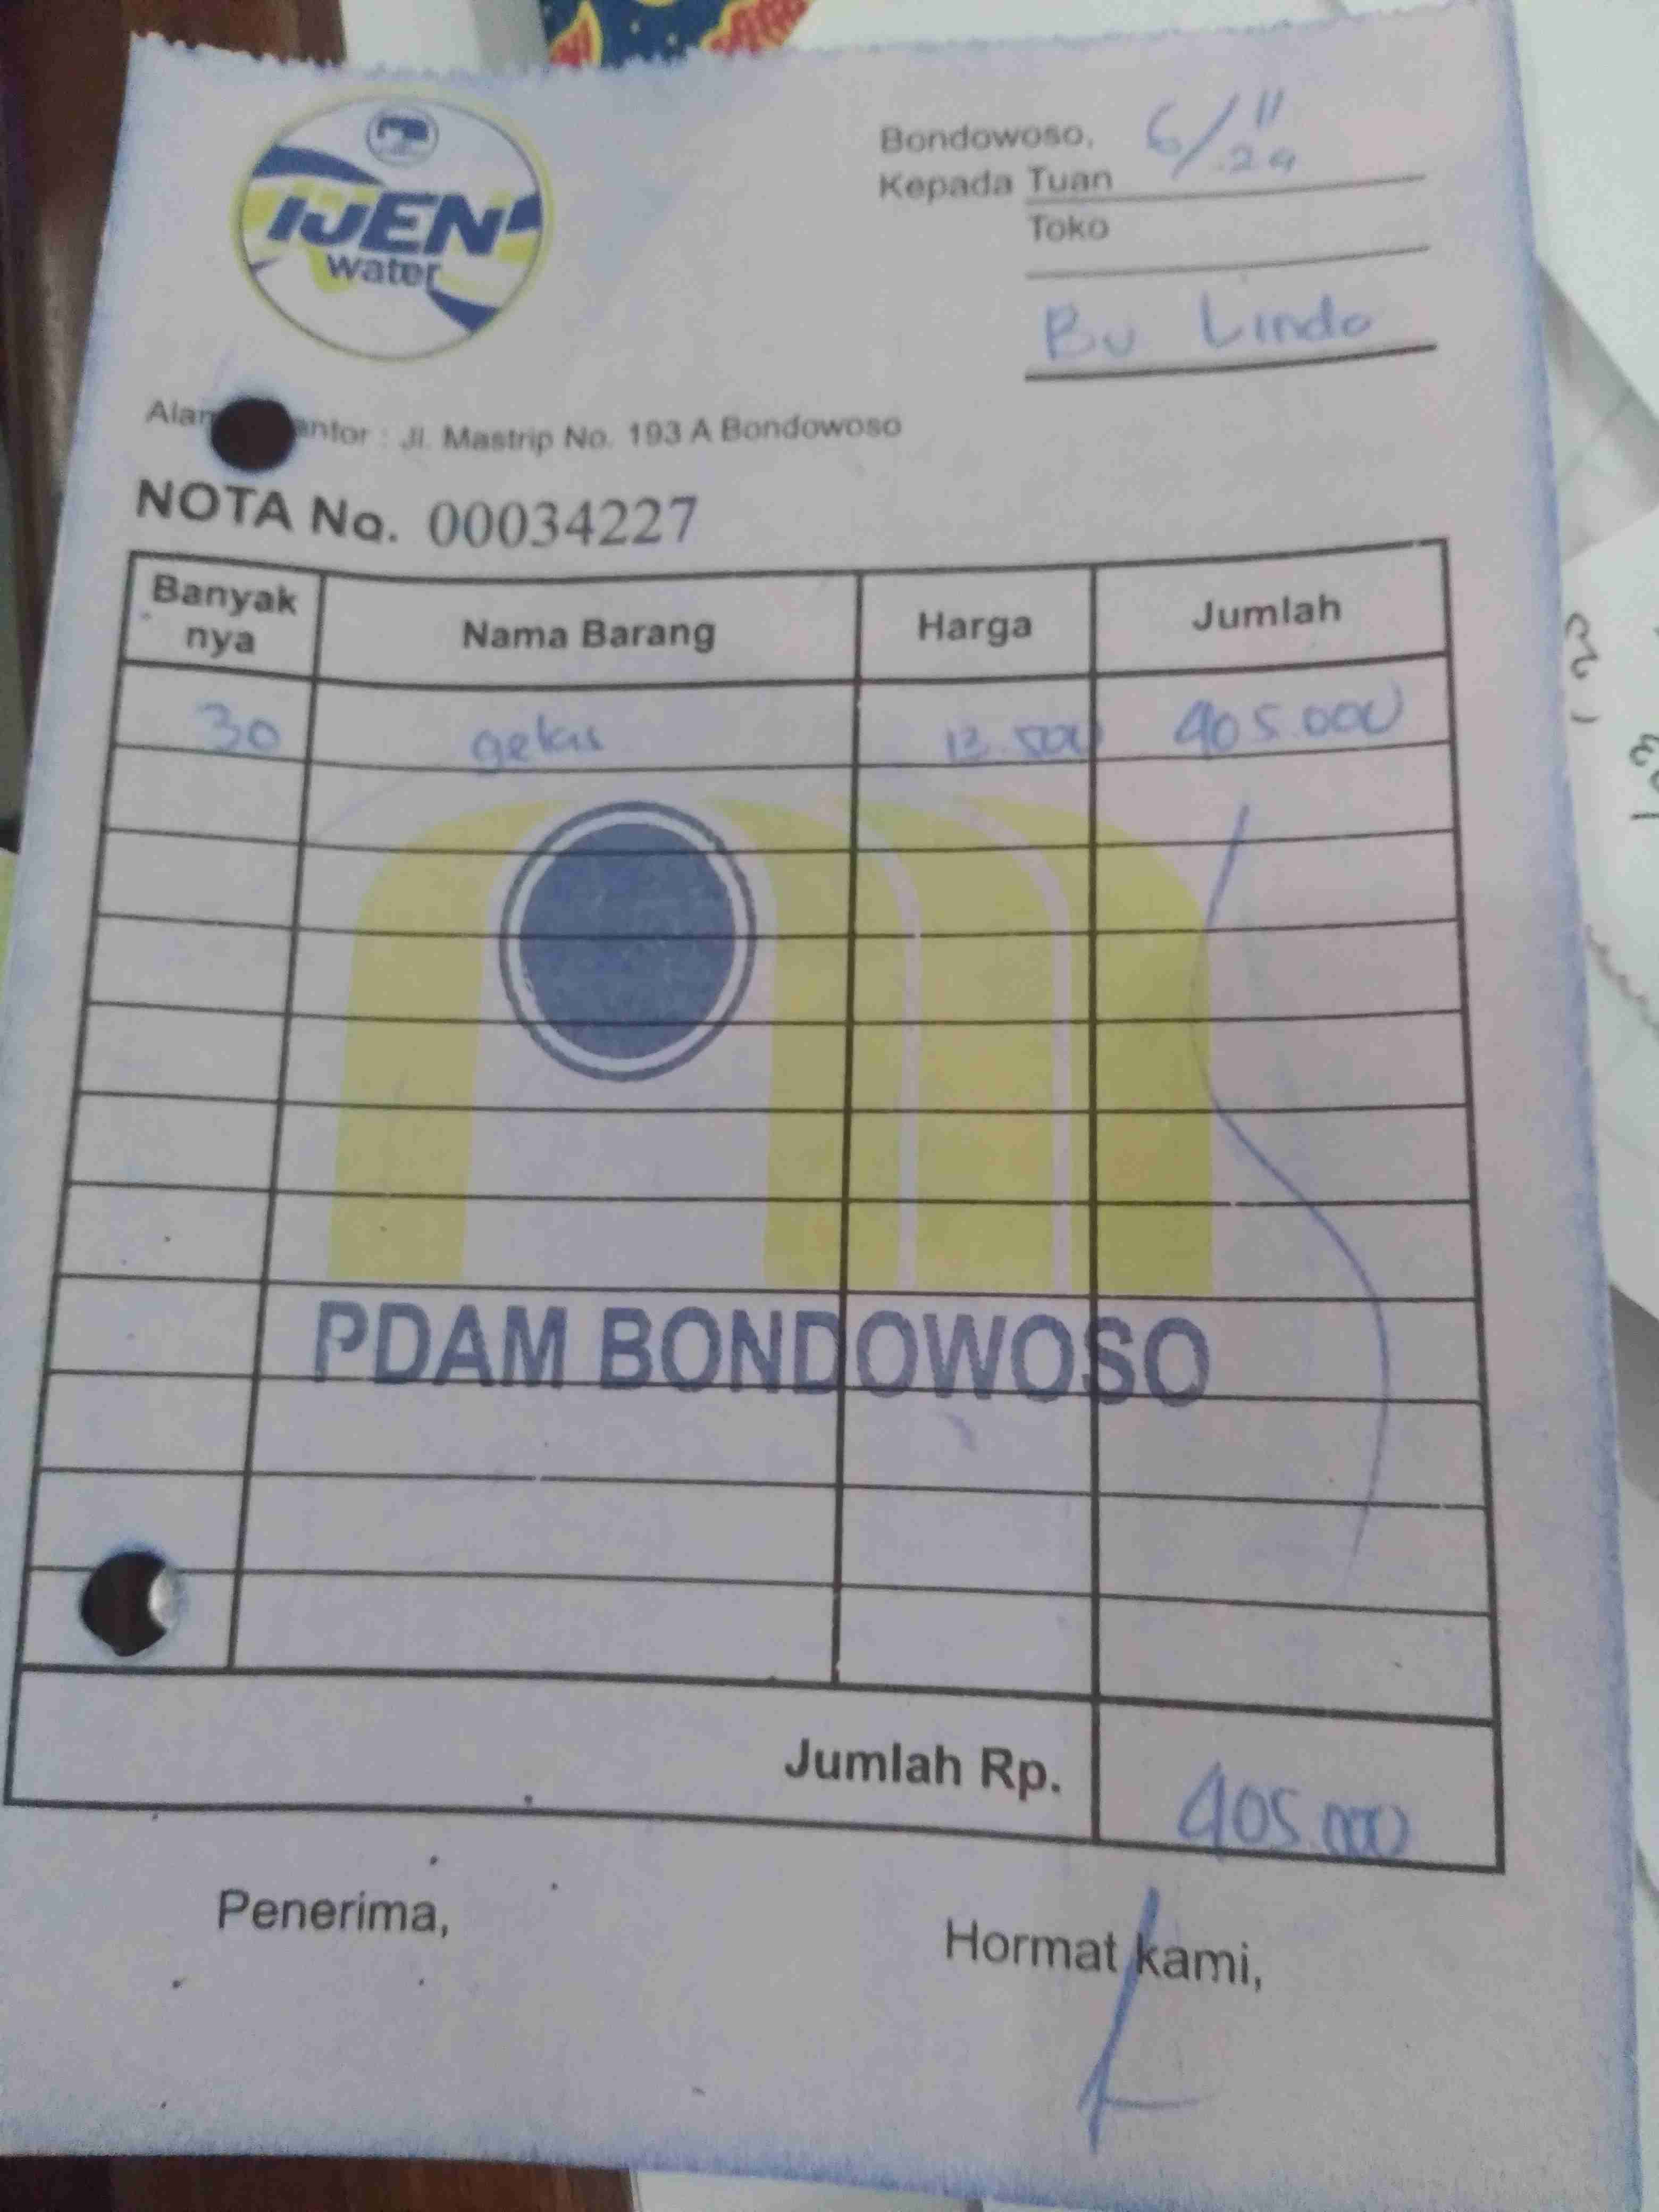 IJEN
water
Bondowoso, 6/11 .24
Kepada Tuan
Toko
Bu Linda
Alam antor : Jl. Mastrip No. 193 A Bondowoso
NOTA No. 00034227
Banyak nya Nama Barang Harga Jumlah
30 gelas 13.500 405.000
PDAM BONDOWOSO
Jumlah Rp. 405.000
Penerima, Hormat kami,